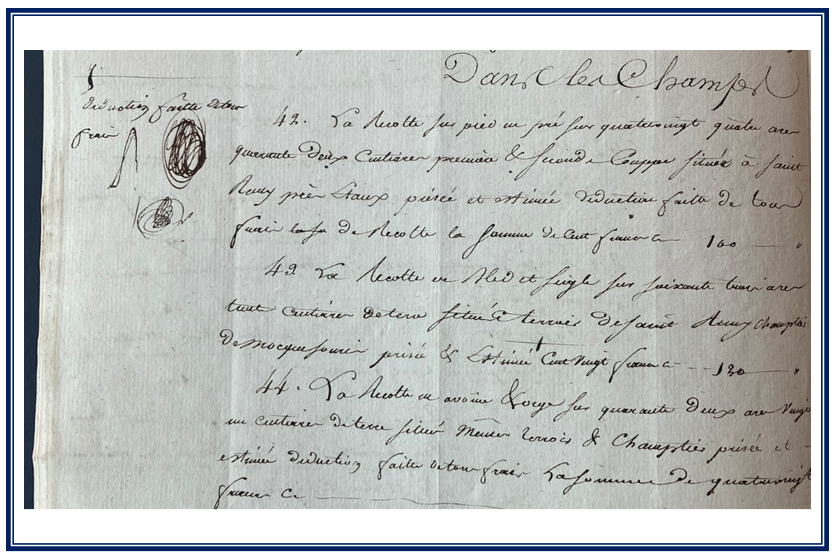 Dans les Champs
déduction faitte de tous
frais
42. La Recolte sur pied en pré sur quatrevingt quatre ares
quarante Deux Centiares premiere & seconde Couppe située à Saint
Remy prèr Etaux prisée et estimée déduction faitte de tous
frais de Recolte la somme de Cent francs Ci 100 "
43 La Recolte en Bled et seigle sur soixante trois ares
tent Centiares de terre située terrois de Saint Remy Champtier
de Mocquesouris prisée & Estimée Cent vingt francs Ci 120 "
44. La Recolte en avoine & orge sur quarante Deux ares vingt
un Centiares de terre située Mêmes terrois & Champtier prisée et
estimée déduction faitte de tous frais La somme de quatrevingt
francs Ci